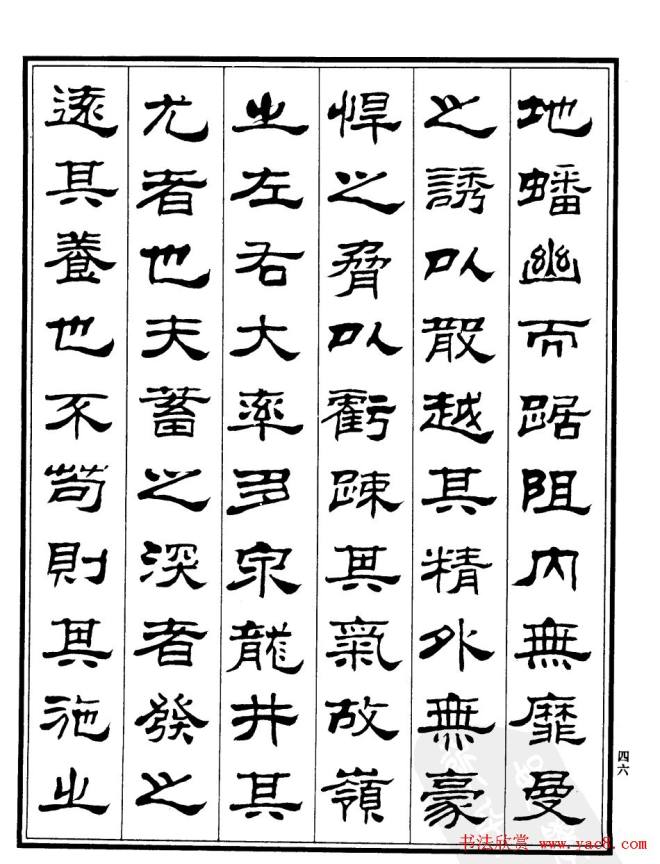 地蟠幽而踞阻內無靡曼
之誘以散越其精外無豪
悍之脅以虧疎其氣故嶺
之左右大率多泉龍井其
尤者也夫蓄之深者發之
遠其養也不苟則其施之
四六
书法欣赏 www.yac8.com